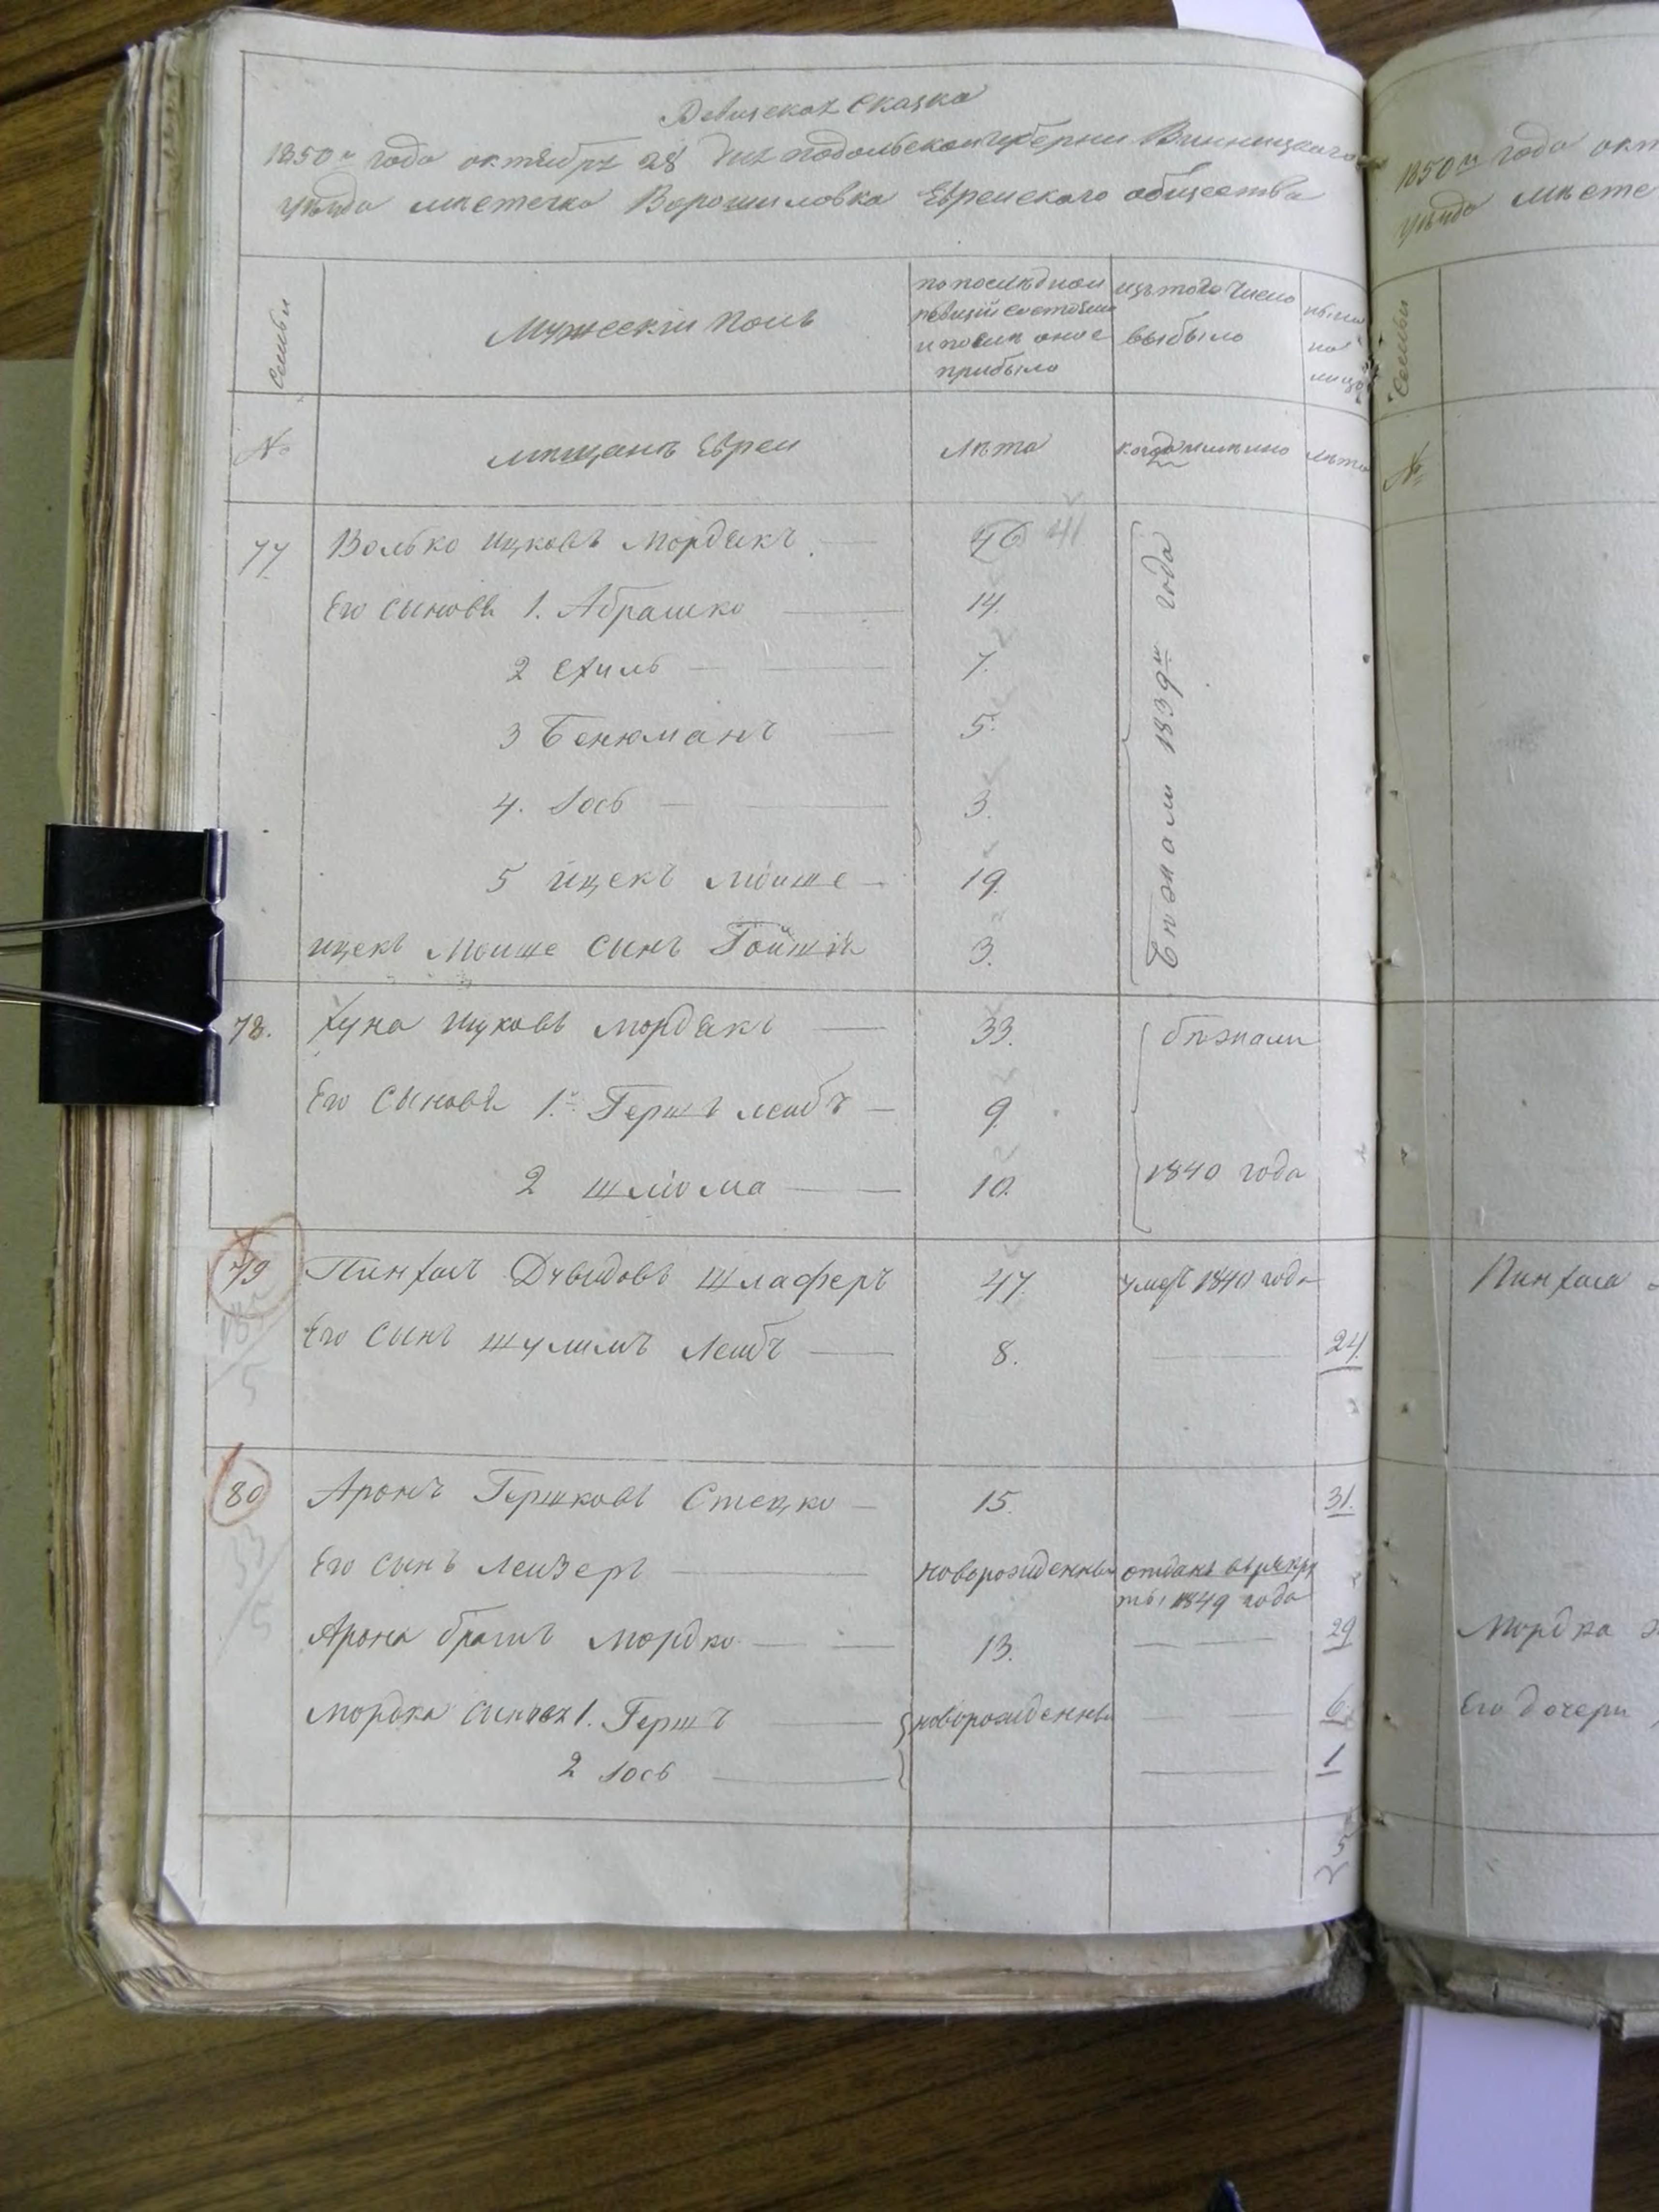 Ревизская сказка
1850го года октября 28 дня подольской губернии Винницкого
уѣзда мѣстечка Ворошиловка Еврейского общества
Семьи
Мужескій Полъ
по последней
ревизіи состояло
и после оное
прибыло
изъ того числа
выбыло
ныне
на
лицо
№
мѣщанъ Евреи
Лѣта
когда именно
лѣта
77 Волько Ицковъ Мордекъ 46 41
Его сыновя 1. Абрашко 14.
2 Ехиль 7.
3 Бенюманъ 5.
4. Іось 3.
5 ицекъ Моише 19.
ицекъ Моише сынъ 3.
Бѣжали 1839го года
78. Хуна Ицковъ Мордекъ 33. бѣжали
Его Сыновя 1. Гершъ леибъ 9.
2 шліома 10. 1840 года
79 Пинхасъ Дувидовъ Шлаферъ 47. умеръ 1840 года
Его Сынъ шулимъ Леибъ 8. 24.
80 Аронъ Гершковъ Стецко 15. 31.
Его сынъ Леизеръ новорожденны отданъ въ рекру
ты 1849 года
Арона братъ Мордко 13. 29
Мордка Синовя 1. Гершъ новорожденны 6
2 Іось 1
5
1850го года окт
уѣзда мѣсте
Семьи
№
Пинхаса
Мордка
Его дочери